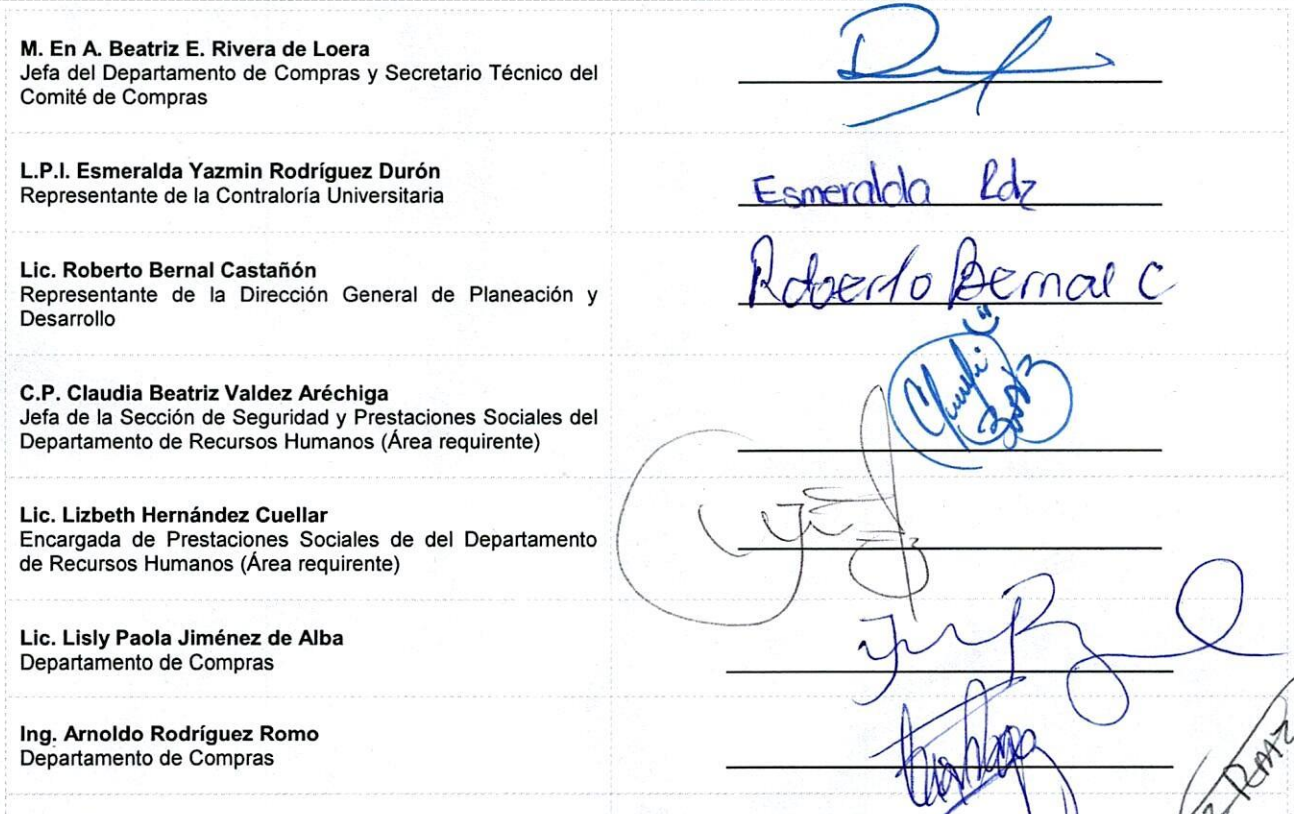 M. En A. Beatriz E. Rivera de Loera
Jefa del Departamento de Compras y Secretario Técnico del
Comité de Compras
L.P.I. Esmeralda Yazmin Rodríguez Durón
Representante de la Contraloría Universitaria
Esmeralda Rdz
Lic. Roberto Bernal Castañón
Representante de la Dirección General de Planeación y
Desarrollo
Roberto Bernal C
C.P. Claudia Beatriz Valdez Aréchiga
Jefa de la Sección de Seguridad y Prestaciones Sociales del
Departamento de Recursos Humanos (Área requirente)
Lic. Lizbeth Hernández Cuellar
Encargada de Prestaciones Sociales de del Departamento
de Recursos Humanos (Área requirente)
Lic. Lisly Paola Jiménez de Alba
Departamento de Compras
Ing. Arnoldo Rodríguez Romo
Departamento de Compras